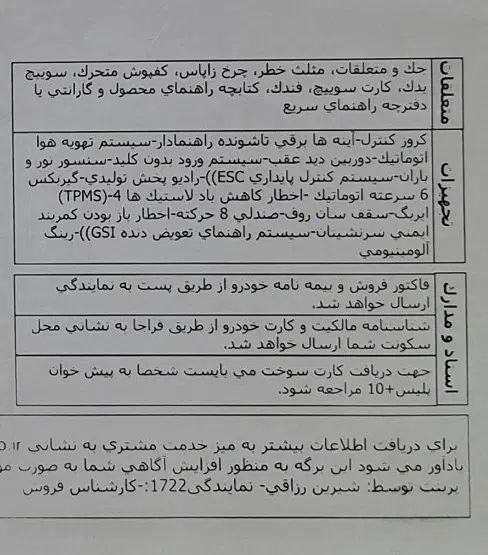 متعلقات
جك و متعلقات، مثلث خطر، چرخ زاپاس، كفپوش متحرك، سوييچ
يدك، كارت سوييچ، فندك، كتابچه راهنماي محصول و گارانتي يا
دفترچه راهنماي سريع
تجهيزات
كروز كنترل-آينه ها برقي تاشونده راهنمادار-سيستم تهويه هوا
اتوماتيك-دوربين ديد عقب-سيستم ورود بدون كليد-سنسور نور و
باران-سيستم كنترل پايداري ESC))-راديو پخش توليدي-گيربكس
6 سرعته اتوماتيك- اخطار كاهش باد لاستيك ها TPMS)-4)
ايربگ-سقف سان روف-صندلي 8 حركته-اخطار باز بودن كمربند
ايمني سرنشينان-سيستم راهنماي تعويض دنده GSI))-رينگ
آلومينيومي
اسناد و مدارك
فاكتور فروش و بيمه نامه خودرو از طريق پست به نمايندگي
ارسال خواهد شد.
شناسنامه مالكيت و كارت خودرو از طريق فراجا به نشاني محل
سكونت شما ارسال خواهد شد.
جهت دريافت كارت سوخت مي بايست شخصا به پيش خوان
پليس+10 مراجعه شود.
براي دريافت اطلاعات بيشتر به ميز خدمت مشتري به نشاني
يادآور مي شود اين برگه به منظور افزايش آگاهي شما به صورت
پرينت توسط: شيرين رزاقي- نمايندگی1722:-كارشناس فروش